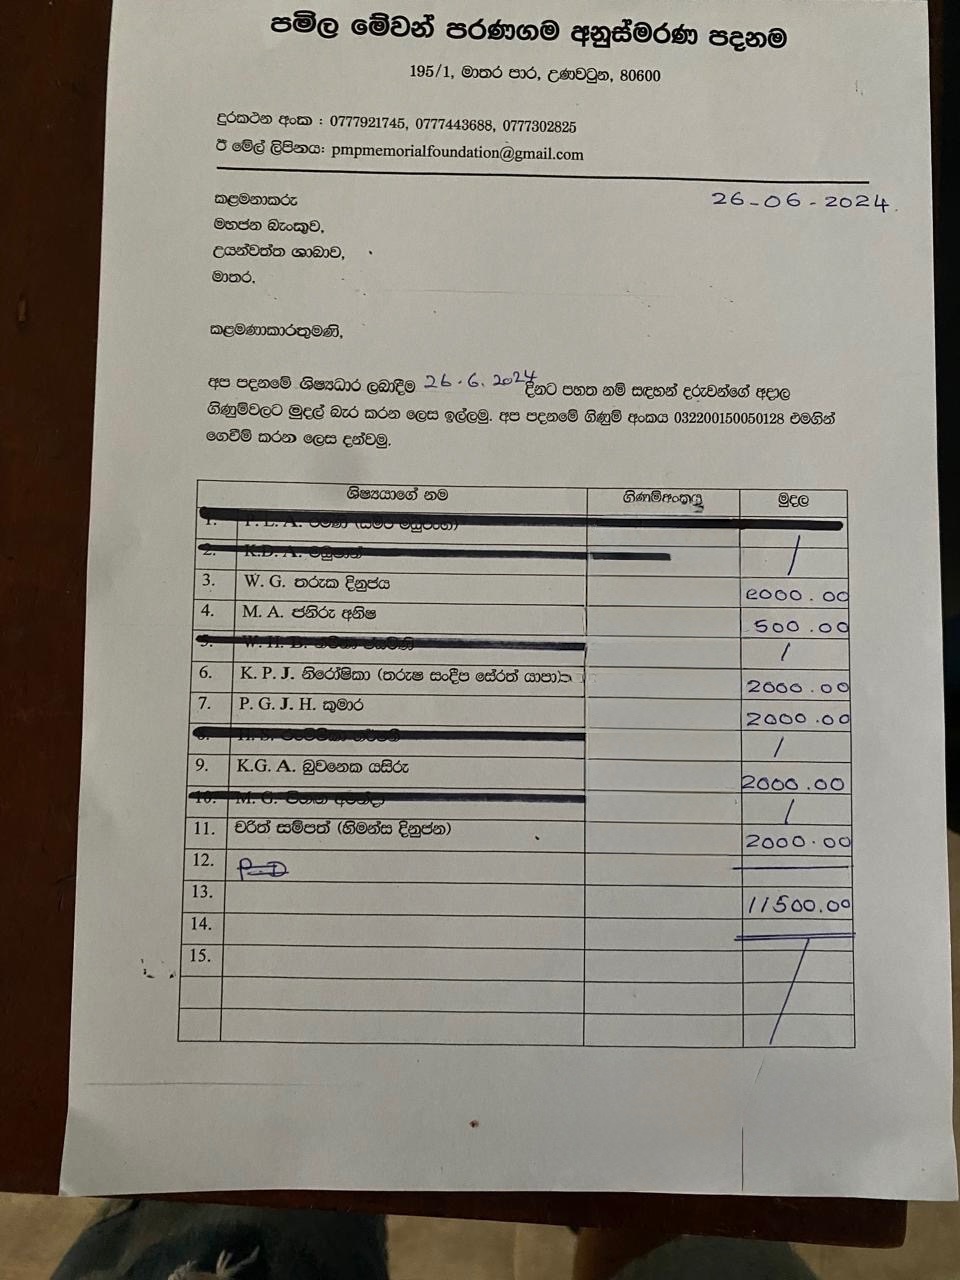 පමිල මේවන් පරණගම අනුස්මරණ පදනම
195/1, මාතර පාර, උණවටුන, 80600
දුරකථන අංක : 0777921745, 0777443688, 0777302825
ඊ මේල් ලිපිනය: pmpmemorialfoundation@gmail.com
26-06-2024.
කළමනාකරු
මහජන බැංකුව,
උයන්වත්ත ශාඛාව,
මාතර.
කළමණාකාරතුමණි,
අප පදනමේ ශිෂ්‍යධාර ලබාදීම 26.6.2024 දිනට පහත නම් සඳහන් දරුවන්ගේ අදාල
ගිණුම්වලට මුදල් බැර කරන ලෙස ඉල්ලමු. අප පදනමේ ගිණුම් අංකය 032200150050128 එමගින්
ගෙවීම් කරන ලෙස දන්වමු.
ශිෂ්‍යයාගේ නම ගිණුම්අංකය මුදල
1. P. L. A.
2. K.D. A. /
3. W. G. තරුක දිනුජය 2000.00
4. M. A. ජනිරු අනිෂ 500.00
5. W. H. B. /
6. K. P. J. නිරෝෂිකා (තරුෂ සංදීප සේරත් යාපා) 2000.00
7. P. G. J. H. කුමාර 2000.00
8. H. S. /
9. K.G. A. බුවනෙක යසිරු 2000.00
10. M. G. /
11. චරිත් සම්පත් (හිමන්ස දිනුජන) 2000.00
12. P.D
13. 11500.00
14.
15.